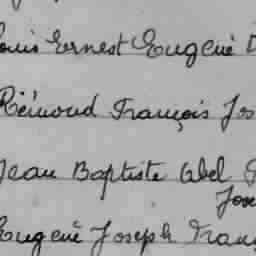 Louis Ernest Eugène D
Rémond François Jos
Jean Baptiste Abel
Jose
Eugène Joseph Franç